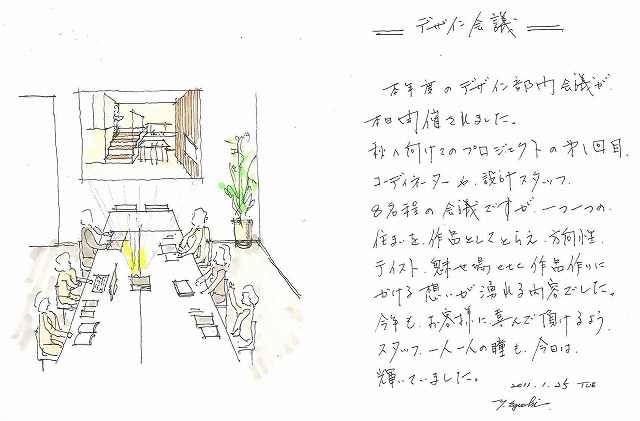 デザイン会議
本年度のデザイン部内会議が、
本日開催されました。
秋へ向けてのプロジェクトの第1回目。
コーディネーターや、設計スタッフ、
8名程の会議ですが、一つ一つの、
住まいを、作品としてとらえ、方向性、
テイスト、魅せ場etc作品作りに
かける想いが湧れる内容でした。
今年も、お客様に喜んで頂けるよう、
スタッフ、一人一人の瞳も、今日は、
輝いていました。
2011.1.25 TUE
Y. Eguchi